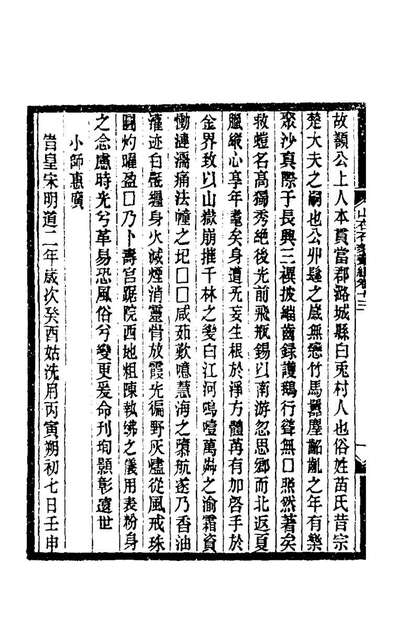 故額公上人本貫當郡潞城縣白兎村人也俗姓苗氏昔宗
楚大夫之嗣也公丱髮之歲無戀竹馬䴡塵齠齔之年有樂
聚沙真際子長興三禩披緇齒錄護鵝行聳無□煕然著矣
救螘名高獨秀絕後光前飛瓶錫以南游忽思鄉而北返夏
臘縱心享年耄矣身道无妄生根於淨方體苒有加咎手於
金界致以山嶽崩摧千林之變白江河嗚噎萬蕣之渝霜資
慟漣濡痛法幢之圮□□咸茹歎噫慧海之隳航遂乃香油
灌迹白㲲纏身火滅煙消靈骨放霞光徧野灰燼從風戒珠
圓灼曜盈□乃卜壽宮踞院西地粗陳執紼之儀用表粉身
之念慮時光兮革易恐風俗兮變更爰命刋珣顯彰遠世
小師惠廣
旹皇宋明道二年歲次癸酉姑洗月丙寅朔初七日壬申
山右石刻叢編卷十二